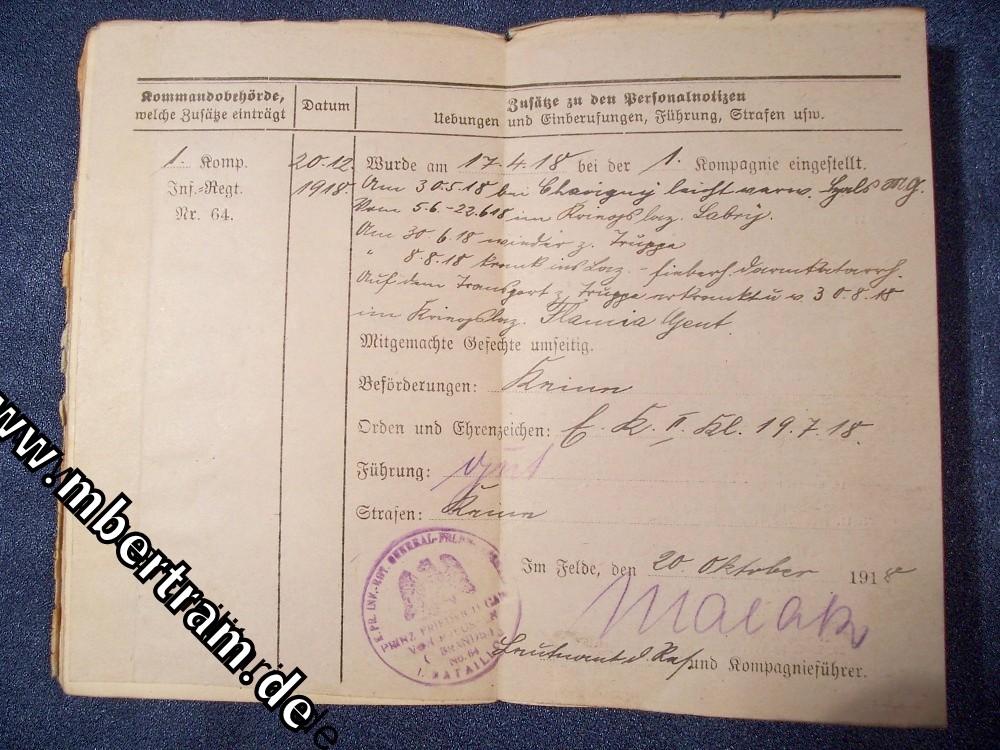 Kommandobehörde,
welche Zusätze einträgt
Datum
Zusätze zu den Personalnotizen
Uebungen und Einberufungen, Führung, Strafen usw.
1. Komp.
Inf.-Regt.
Nr. 64.
20.12.
1918.
Wurde am 17.4.18 bei der 1. Kompagnie eingestellt.
Am 30.5.18 bei Chavigny leicht verw. Hals M.G.
Vom 5.6.-22.6.18 im Kriegslaz. Labry.
Am 30.6.18 wieder z. Truppe
" 8.8.18 krank ins Laz. - fieberh. Darmkatarrh.
Auf dem Transport z. Truppe erkrankt u. v. 30.8.18
im Kriegslaz. Gent
Mitgemachte Gefechte umseitig.
Beförderungen: Keine
Orden und Ehrenzeichen: E. K. II. Kl. 19.7.18.
Führung: gut
Strafen: Keine
Im Felde, den 20 Oktober 1918
Leutnant d. Res. und Kompagnieführer.
K. PR. INF.-RGT. GENERAL-FELDM
PRINZ FRIEDRICH CARL
VON PREUSSEN
BRANDBG.
No. 64
I. BATAILLON
www.mbertram.de